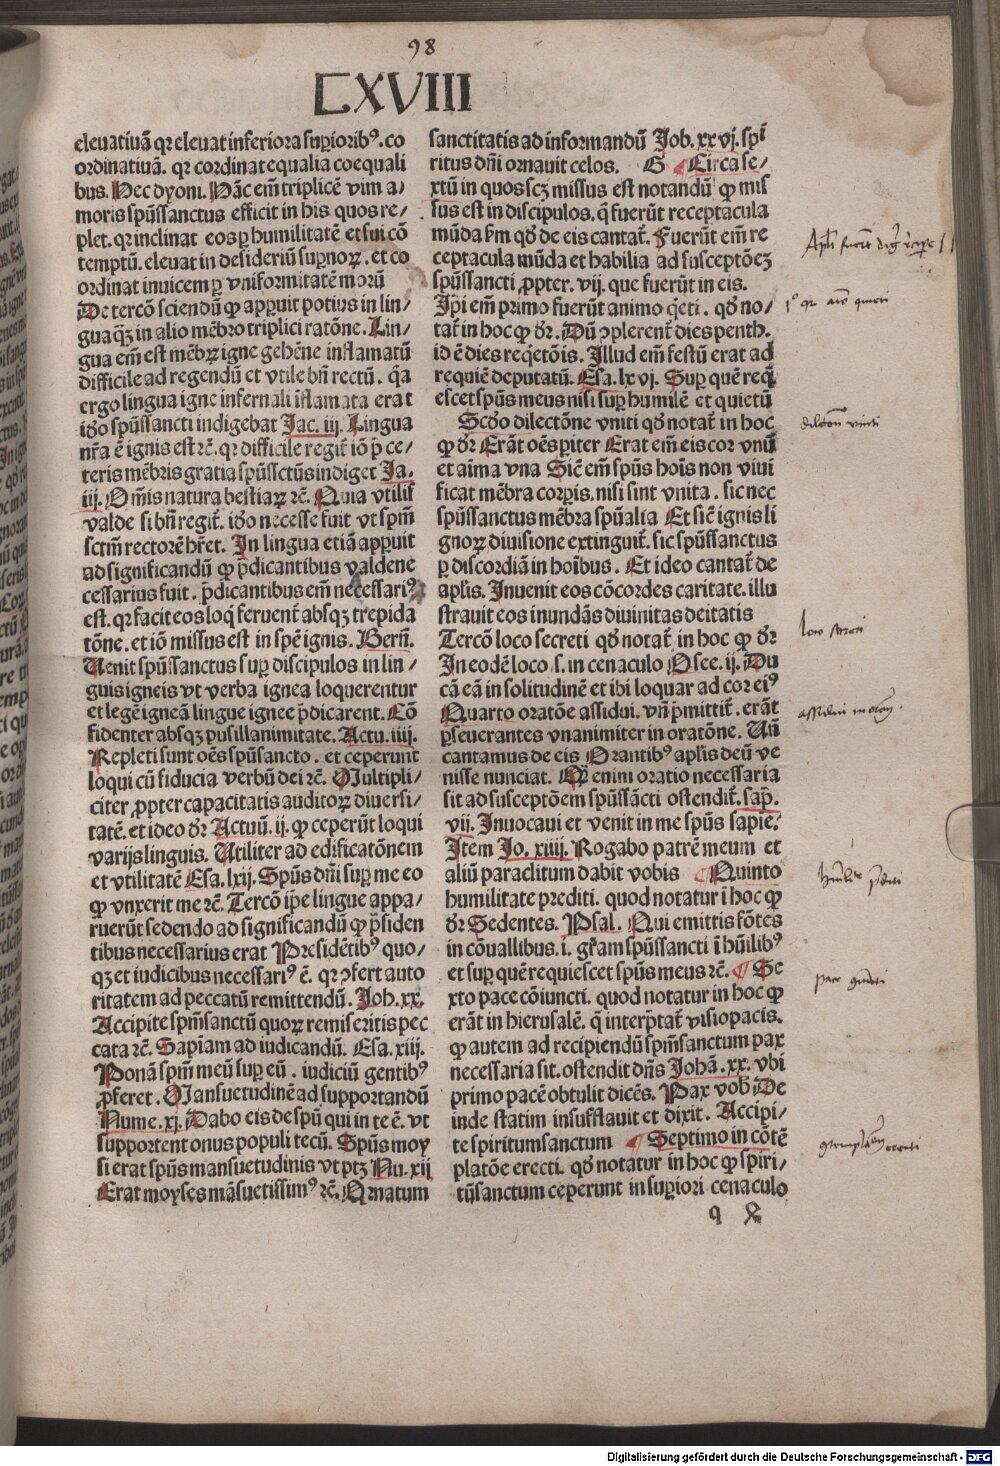 98
CXVIII
eleuatiuā qr eleuat inferiora suꝑiorib⁹. co
ordinatiuā. qr cordinat equalia coequali
bus. Hec dyoni. Hāc em̄ triplicē vim a⸗
moris spūssanctus efficit in his quos re⸗
plet. qr inclinat eos ꝑ humilitatē et sui cō
temptū. eleuat in desideriū suꝑnoꝝ. et co
ordinat inuicem ꝑ vniformitatē morū
De tercō sciendū ꝙ apparuit potius in lin⸗
gua qꝫ in alio mēbro triplici ratōne. Lin⸗
gua em̄ est mēbꝝ igne gehēne inflamatū
difficile ad regendū et vtile bn̄ rectū. q̄a
ergo lingua igne infernali īflamata erat
igͦo spūssancti indigebat Jac. iij. Lingua
nr̄a ē ignis est rē. qr difficile regit̄ iō p̄ ce⸗
teris mēbris gratia spūssctūs indiget Ja⸗
iij. Om̄is natura bestiaꝝ rē. Quia vtilis
valde si bn̄ regit̄. igͦo necesse fuit vt spm̄
sctm̄ rectorē hr̄et. In lingua etiā apparuit
ad significandū ꝙ p̄dicantibus valde ne
cessarius fuit. p̄dicantibus em̄ necessari⁹
est. qr facit eos loq̄ feruent̄ absqꝫ trepida
tōne. et iō missus est in spē ignis. Bern̄.
Uenit spūssanctus suꝑ discipulos in lin⸗
guis igneis vt verba ignea loquerentur
et legē igneā lingue ignee p̄dicarent. Cō
fidenter absqꝫ pusillanimitate. Actu. iiij.
Repleti sunt oēs spūsancto. et ceperunt
loqui cū fiducia verbū dei rē. Multipli⸗
citer ꝓpter capacitatis auditoꝝ diuersi⸗
tatē. et ideo dr̄ Actuū. ij. ꝙ ceperūt loqui
varijs linguis. Utiliter ad edificatōnem
et vtilitatē Esa. lxij. Spūs dn̄i suꝑ me eo
ꝙ vnxerit me rē. Tercō ip̄e lingue appa⸗
ruerūt sedendo ad significandū ꝙ p̄siden
tibus necessarius erat Presidētib⁹ quo⸗
qꝫ et iudicibus necessari⁹ ē. qr ꝯfert auto
ritatem ad peccatū remittendū. Joh. xx.
Accipite spm̄ sanctū quoꝝ remiseritis pec
cata rē. Sapīam ad iudicandū. Esa. xiii.
Ponā spm̄ meū suꝑ eū. iudiciū gentib⁹
ꝓferet. Mansuetudinē ad supportandū
Nume. xj. Dabo eis de spū qui in te ē. vt
supportent onus populi tecū. Spūs moy
si erat spūs mansuetudinis vt ptꝫ Nu. xij
Erat moyses māsuetissim⁹ rē. Ornatum
sanctitatis ad informandū Job. xxvj. spi
ritus dn̄i ornauit celos. G ¶ Circa se⸗
xtū in quos scꝫ missus est notandū ꝙ mis
sus est in discipulos. q̄ fuerūt receptacula
mūda ẜm qd̄ de eis cantat̄. Fuerūt em̄ re
ceptacula mūda et habilia ad susceptōeꝫ
spūssancti ꝓpter. vij. que fuerūt in eis.
Ip̄i em̄ primo fuerūt animo q̄eti. qd̄ no⸗
tat̄ in hoc ꝙ dr̄. Dū ꝯplerent̄ dies penth.
id ē dies reqͥetōis. Illud em̄ festū erat ad
requiē deputatū. Esa. lxvj. Suꝑ quē reqͥ
escet spūs meus nisi suꝑ humilē et quietū
Scd̄o dilectōne vniti qd̄ notat̄ in hoc
ꝙ dr̄ Erāt oēs ꝑiter Erat em̄ eis cor vnū
et aīma vna Sicē em̄ spūs hoīs non viui
ficat mēbra corꝑis. nisi sint vnita. sic nec
spūssanctus mēbra spūalia Et sicē ignis li
gnoꝝ diuisione extinguit̄. sic spūssanctus
ꝑ discordiā in hoībus. Et ideo cantat̄ de
apl̄is. Inuenit eos cōcordes caritate. illu
strauit eos inundās diuinitas deitatis
Tercō loco secreti qd̄ notat̄ in hoc ꝙ dr̄
In eodē loco .s. in cenaculo Osee. ij. Du
cā eā in solitudinē et ibi loquar ad cor ei⁹
Quarto oratōne assidui. vn̄ p̄mittit̄. erāt
ꝑseuerantes vnanimiter in oratōne. Un̄
cantamus de eis Orantib⁹ apl̄is deū ve
nisse nunciat. Qd̄ enim oratio necessaria
sit ad susceptōem spūssācti ostendit̄. sap̄.
vij. Inuocaui et venit in me spūs sapiē.
Item Jo. xiiij. Rogabo patrē meum et
aliū paraclitum dabit vobis ¶ Quinto
humilitate prediti. quod notatur ī hoc ꝙ
dr̄ Sedentes. Psal. Qui emittis fōtes
in cōuallibus. i. gr̄am spūssancti ī hūilib⁹
et suꝑ quē requiescet spūs meus rē. ¶ Se
xto pace cōiuncti. quod notatur in hoc ꝙ
erāt in hierusalē. q̄ interp̄tat̄ visio pacis.
ꝙ autem ad recipiendū spm̄sanctum pax
necessaria sit. ostendit dn̄s Johā. xx. vbi
primo pacē obtulit dicēs. Pax vob̄ De
inde statim insufflauit et dixit. Accipi⸗
te spiritumsanctum ¶ Septimo in cōtē
platōe erecti. qd̄ notatur in hoc ꝙ spiri⸗
tūsanctum ceperunt in suꝑiori cenaculo
q
Digitalisierung gefördert durch die Deutsche Forschungsgemeinschaft - DFG